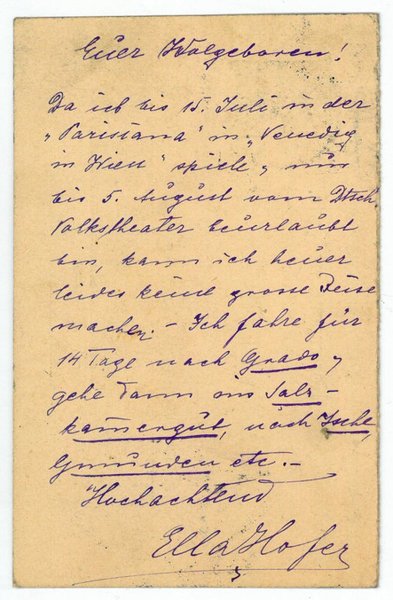 Euer Wolgeboren!
Da ich bis 15. Juli in der
„Parisiana" in „Venedig
in Wien" spiele, nur
bis 5. August vom Dtsch.
Volkstheater beurlaubt
bin, kann ich heuer
leider keine grosse Reise
machen. – Ich fahre für
14 Tage nach Grado,
gehe dann ins Salz-
kamergut, nach Ischl,
Gmunden etc. –
Hochachtend
Ella Hofer